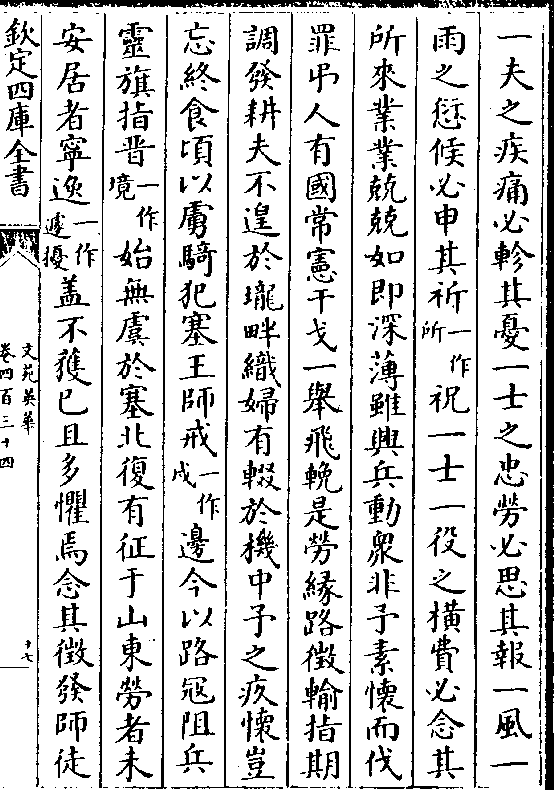 一夫之疾痛必軫其憂一士之忠勞必思其報一風一
雨之愆候必申其祈一作所祝一士一役之橫費必念其
所來業業兢兢如即深薄雖興兵動衆非予素懷而伐
罪弔人有國常憲干戈一舉飛輓是勞緣路徵輸指期
調發耕夫不遑於壠畔織婦有輟於機中予之疚懷豈
忘終食頃以虜騎犯塞王師戒一作戍邊今以路冦阻兵
靈旗指晋一作境始無虞於塞北復有征于山東勞者未
安居者寧逸一作遽擾盖不獲已且多懼焉念其徴發師徒
欽定四庫全書
文苑英華
卷四百三十四
十七